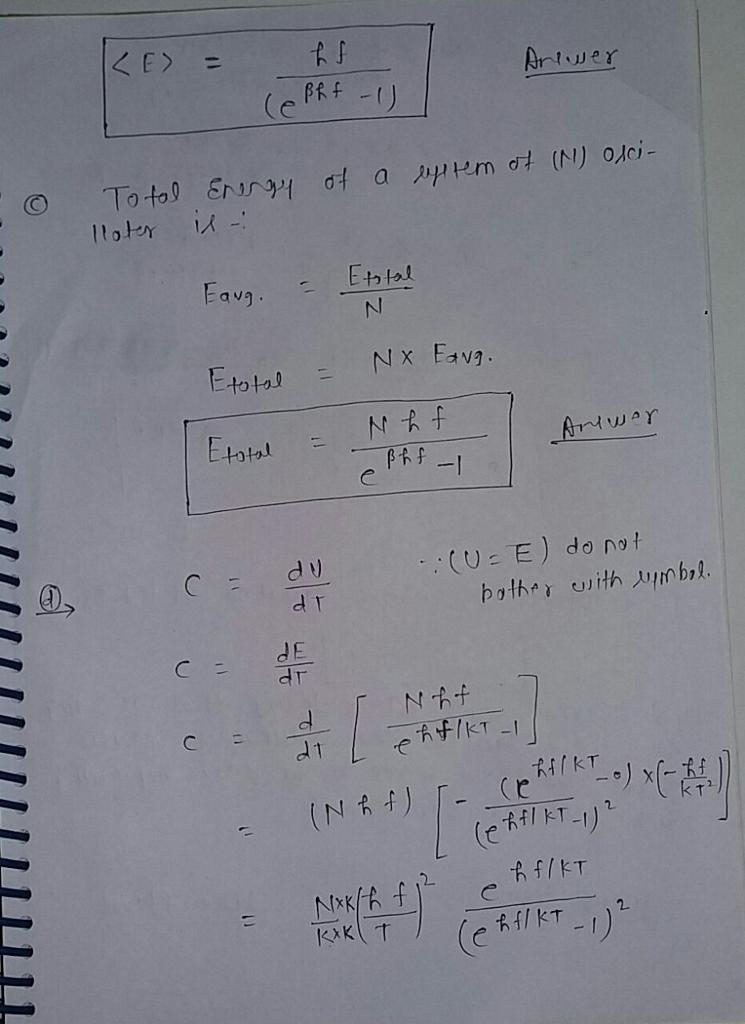 <E> = hf / (e^βhf - 1) Answer
(c) Total Energy of a system of (N) osci-
llator is -:
Eavg. = Etotal / N
Etotal = N x Eavg.
Etotal = Nhf / e^βhf - 1 Answer
(d) C = dU / dT ∵ (U = E) do not
bother with symbol.
C = dE / dT
C = d / dT [ Nhf / e^hf/KT - 1 ]
= (Nhf) [ - (e^hf/KT - 0) x (- hf / KT²) / (e^hf/KT - 1)² ]
= NxK / KxK (hf / T)² e^hf/KT / (e^hf/KT - 1)²